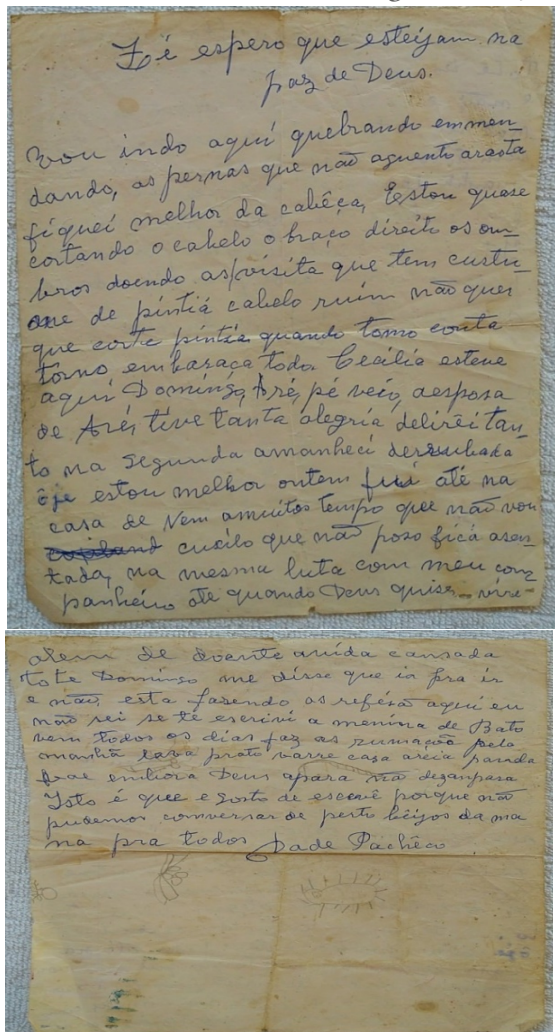 Zé espero que esteijam na
paz de Deus.
Vou indo aqui quebrando emmen_
dando, as pernas que não aguento arasta
fiquei melhor da cabêça, Estou quase
cortando o cabelo o braço direito os om_
bros doendo as visita que tem custu_
me de pintiá cabelo ruim não quer
que corte pintia quando tomo conta
torno embaraça todo. Cecilia esteve
aqui Domingo, Aré, pé veio, aesposa
de Aré, tive tanta alegria delirei tan_
to na Segunda amanheci derrubada
ôje estou melhor ontem fui até na
casa de Nem amuitos tempo que não vou
cucilo que não poso ficá asen_
tada, na mesma luta com meu com_
panheiro ate quando Deus quiser_ vire_
alem de doente a vida cansada
tote Domingo me disse que ia pra ir
e não, esta fazendo as refeisã aqui eu
não sei se te escrivi a menina de Bato
vem todos os dias faz as rumação pela
manhã lava prato varre casa areia panela
e vae embora Deus apara não dezanpara
Isto é que e gosto de escevê porque não
pudemos conversar de perto beijos da ma
na pra todos Dade Pachêco